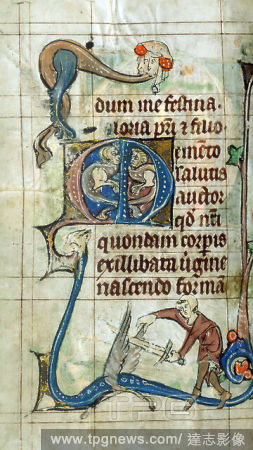 dum me festina
loria pri ⁊ filio
emēto
salutis
auctor
qd nri
quondam corpis
ex illibata ugine
nascendo formā
www.tpgnews.com/達志影像